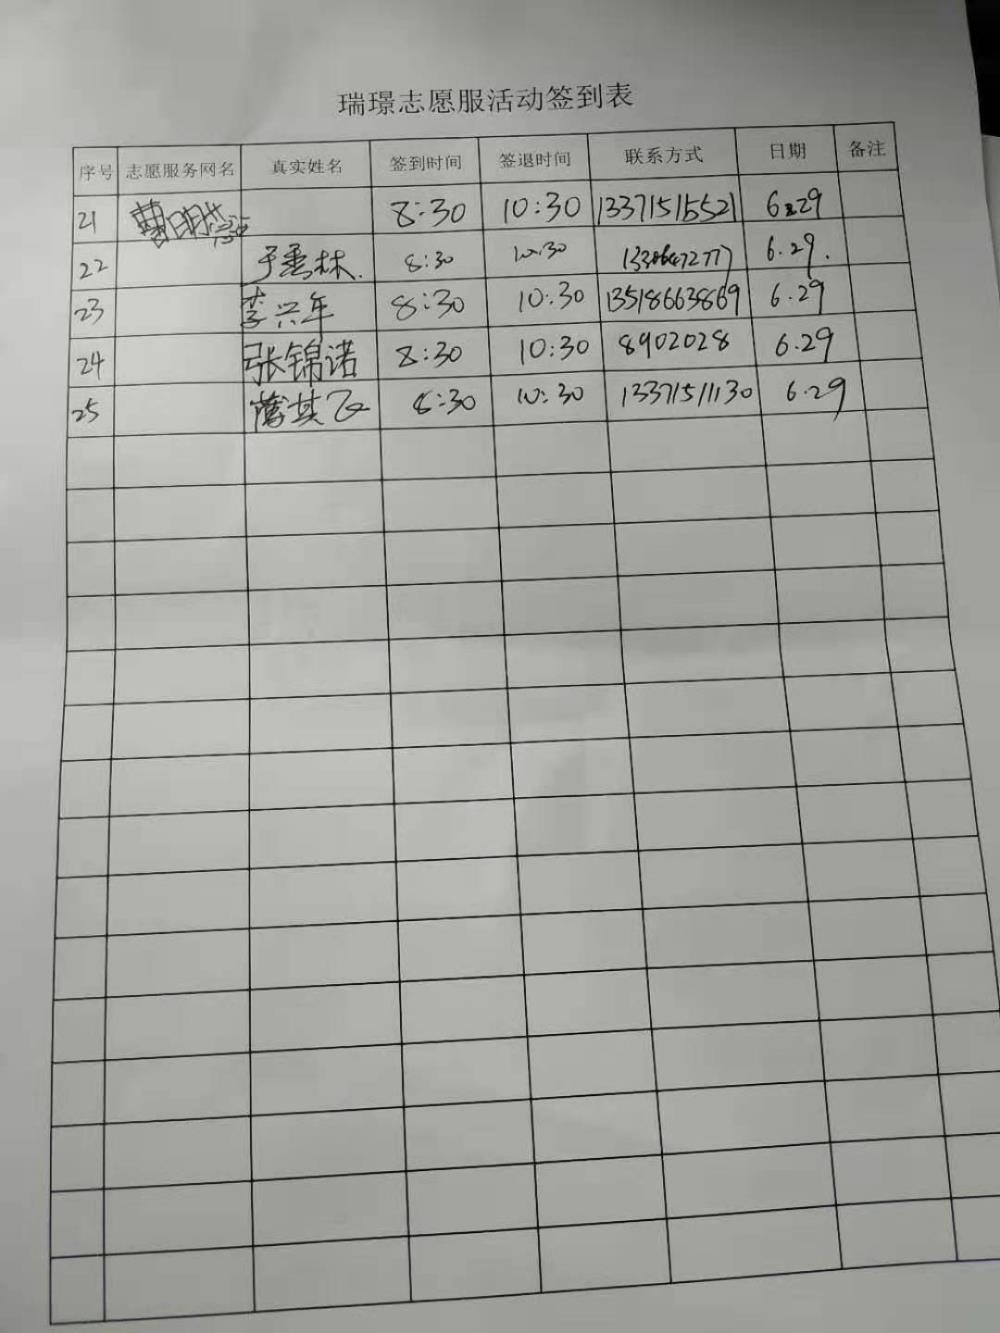 瑞璟志愿服活动签到表
序号 志愿服务网名 真实姓名 签到时间 签退时间 联系方式 日期 备注
21 曹明 8:30 10:30 13371515521 6.29
22 于秀林 8:30 10:30 6.29.
23 李兴年 8:30 10:30 13518663869 6.29
24 张锦诺 8:30 10:30 8902028 6.29
25 其飞 8:30 10:30 13371511130 6.29